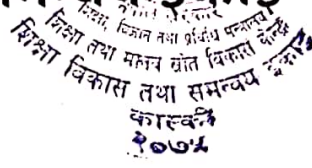 शिक्षा, विज्ञान तथा प्रविधि मन्त्रालय
शिक्षा तथा मानव स्रोत विकास केन्द्र
शिक्षा विकास तथा समन्वय इकाई
कास्की
२०७५